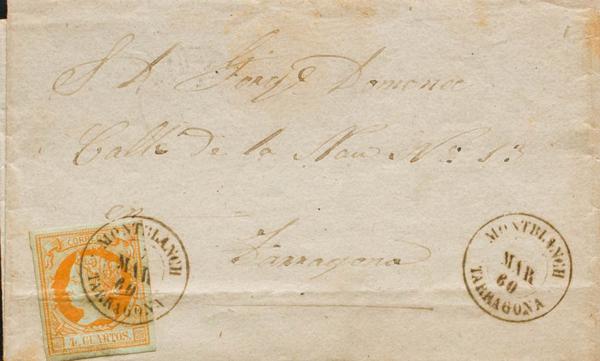 S. D. Jorge Domenec
Calle de la Nau Nº 13
en
Tarragona
CORREOS
4 CUARTOS.
MONTBLANCH
MAR
60
TARRAGONA
MONTBLANCH
MAR
60
TARRAGONA